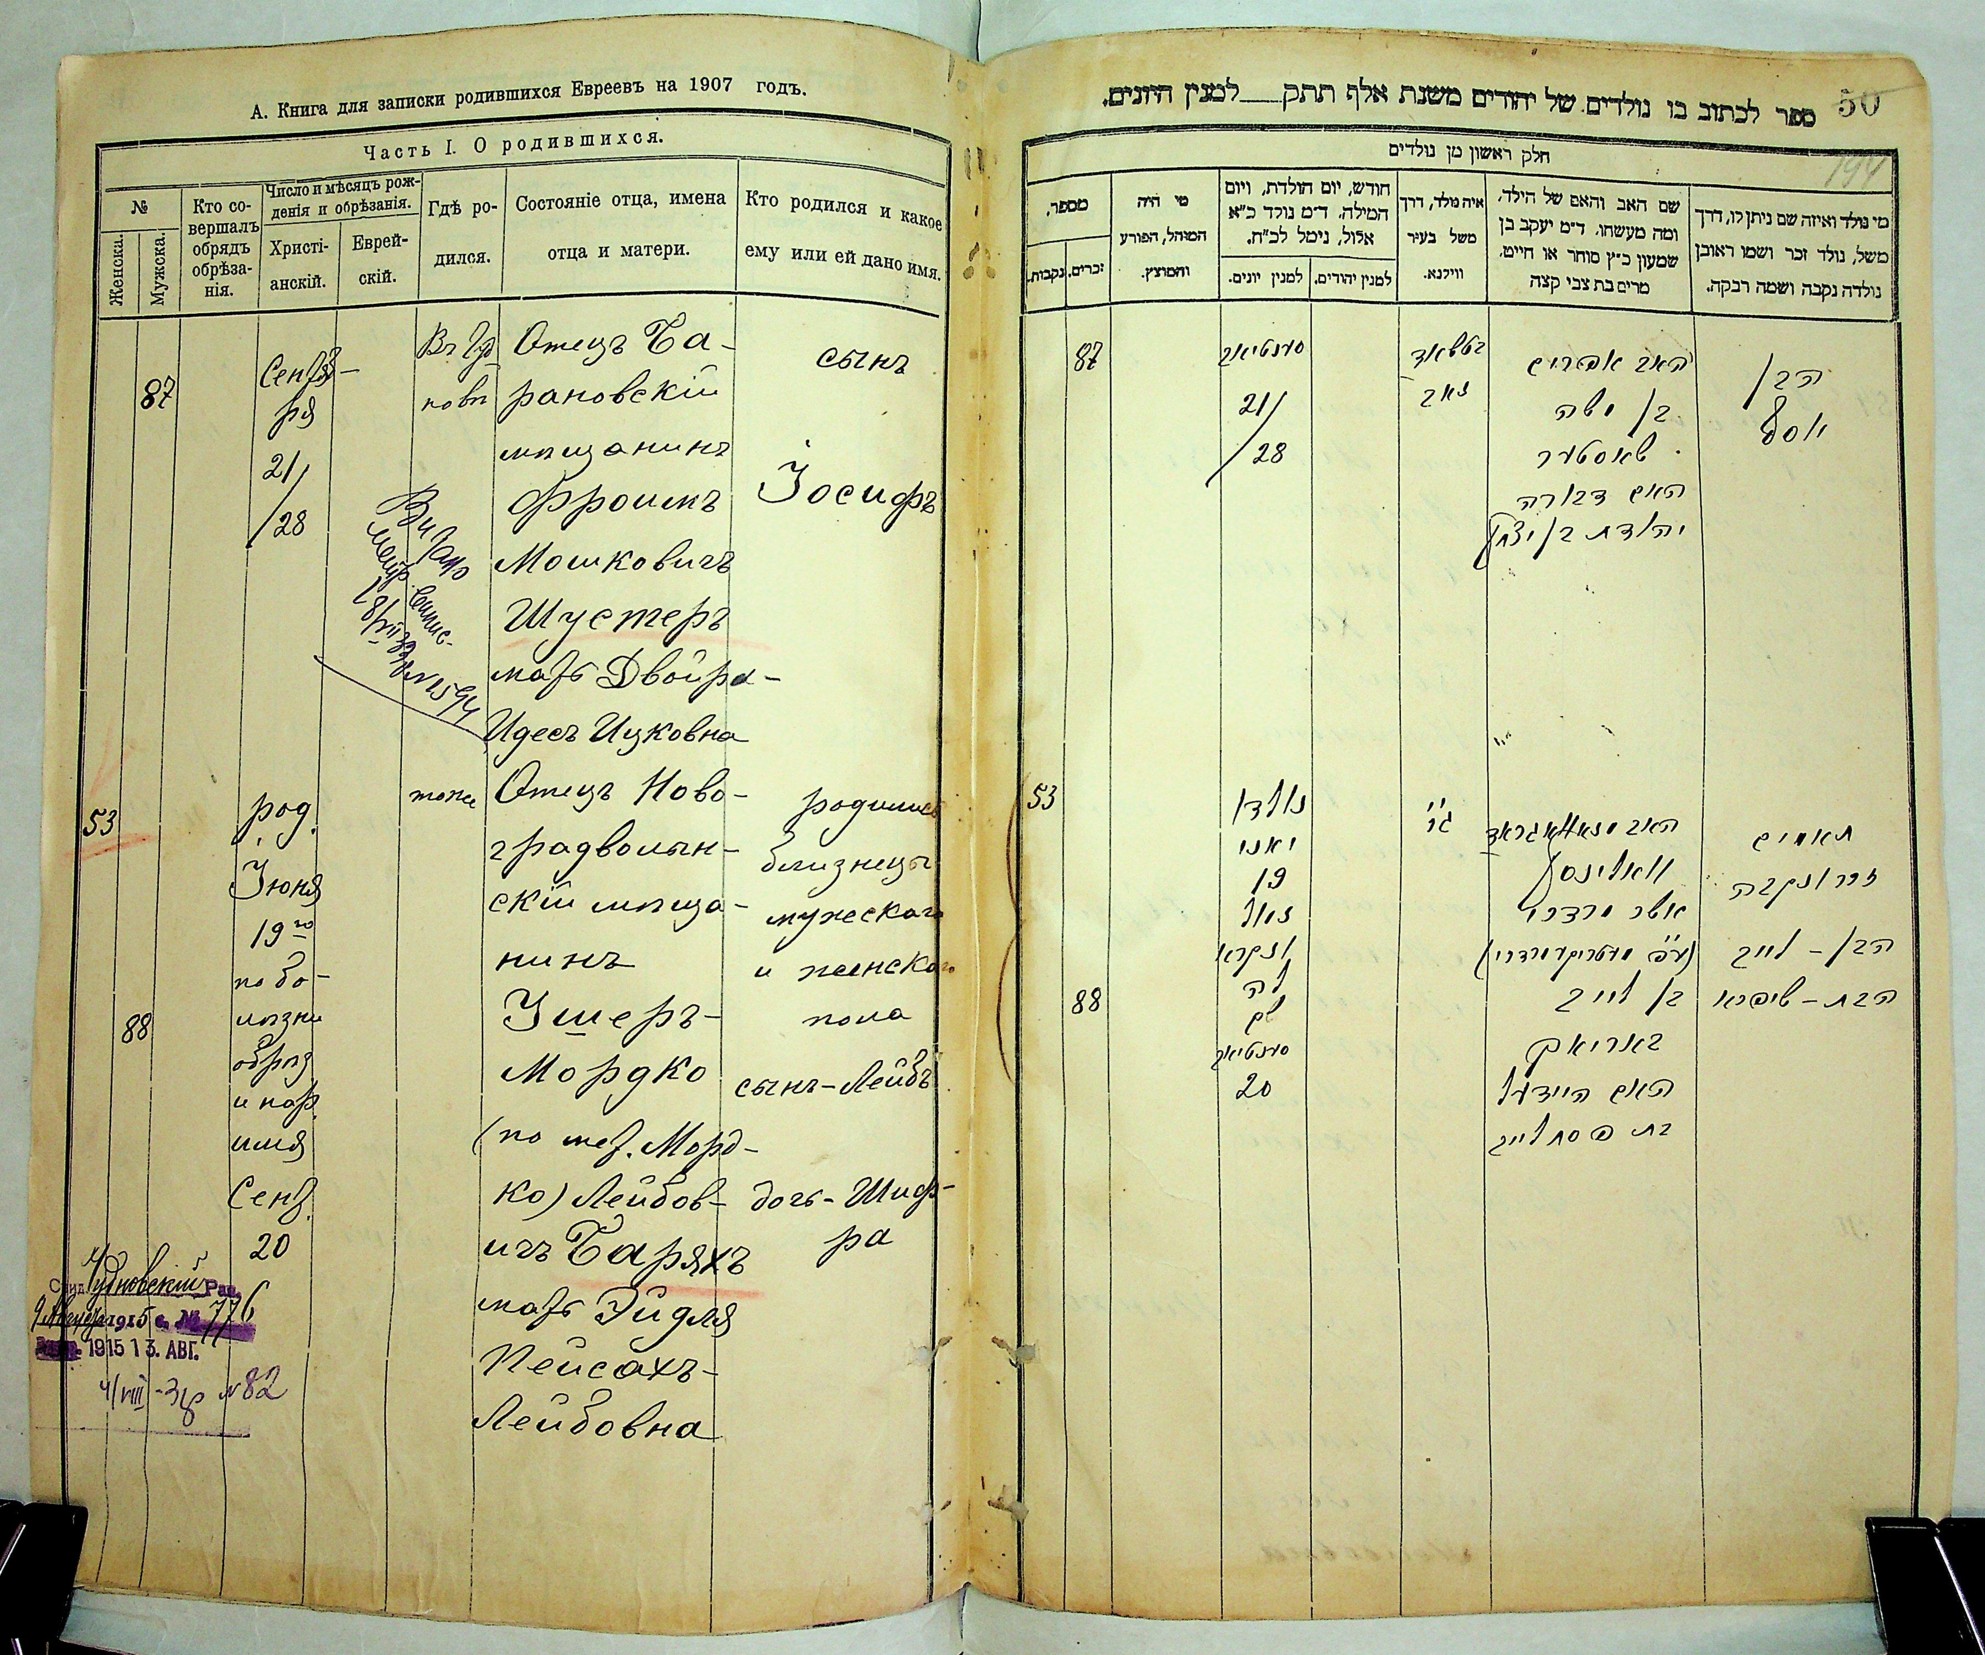 А. Книга для записки родившихся Евреевъ на 1907 годъ.
Часть I. О родившихся.
№
Женска.
Мужска.
Кто со-
вершалъ
обрядъ
обрѣза-
нія.
Число и мѣсяцъ рож-
денія и обрѣзанія.
Христі-
анскій.
Еврей-
скій.
Гдѣ ро-
дился.
Состояніе отца, имена
отца и матери.
Кто родился и какое
ему или ей дано имя.
87
Сентя-
ря
21/
/28
Въ Чуд
новѣ
Отецъ Ба-
рановскій
мѣщанинъ
Фроимъ
Мошковичъ
Шустеръ
мать Двойра-
Идесъ Ицковна
сынъ
Іосифъ
53
88
род.
Іюня
19го
по бо-
лѣзни
обряд
и нар.
имя
Сент.
20
тоже
Отецъ Ново-
градволын-
скій мѣща-
нинъ
Ушеръ-
Мордко
(по мет. Морд-
ко) Лейбов-
ичъ Баряхъ
мать Эйдля
Пейсахъ-
Лейбовна
родились
близнецы
мужескаго
и женскаго
пола
сынъ-Лейбъ
дочь-Шиф-
ра
Чудновскій Рав.
1915 г. № 776
1915 13. АВГ.
№ 82
ספר לכתוב בו נולדים של יהודים משנת אלף תתק למנין היונים.
50
194
חלק ראשון מן נולדים
מספר.
נקבות.
זכרים.
מי היה
המוהל, הפורע
והמוצץ.
חודש, יום הולדת, ויום
המילה. ד״מ נולד כ״א
אלול, נימל לכ״ח.
למנין יונים.
למנין יהודים.
איה נולד, דרך
משל בעיר
ווילנא.
שם האב והאם של הילד,
ומה מעשהו. ד״מ יעקב בן
שמעון כ״ץ סוחר או חייט,
מרים בת צבי קצה
מי נולד ואיזה שם ניתן לו, דרך
משל, נולד זכר ושמו ראובן
נולדה נקבה ושמה רבקה.
87
סענטיאב
21/
/28
האב אפרים
בן משה
שוסטער
האם דבורה
יהודת בן יצחק
הבן
יוסף
53
88
נולדו
יאני
19
20
האב
אשר מרדכי
בן לייב
באריאך
האם היידעל
בת פסח לייב
תאמים
זכר ונקבה
הבן - לייב
הבת - שיפרא